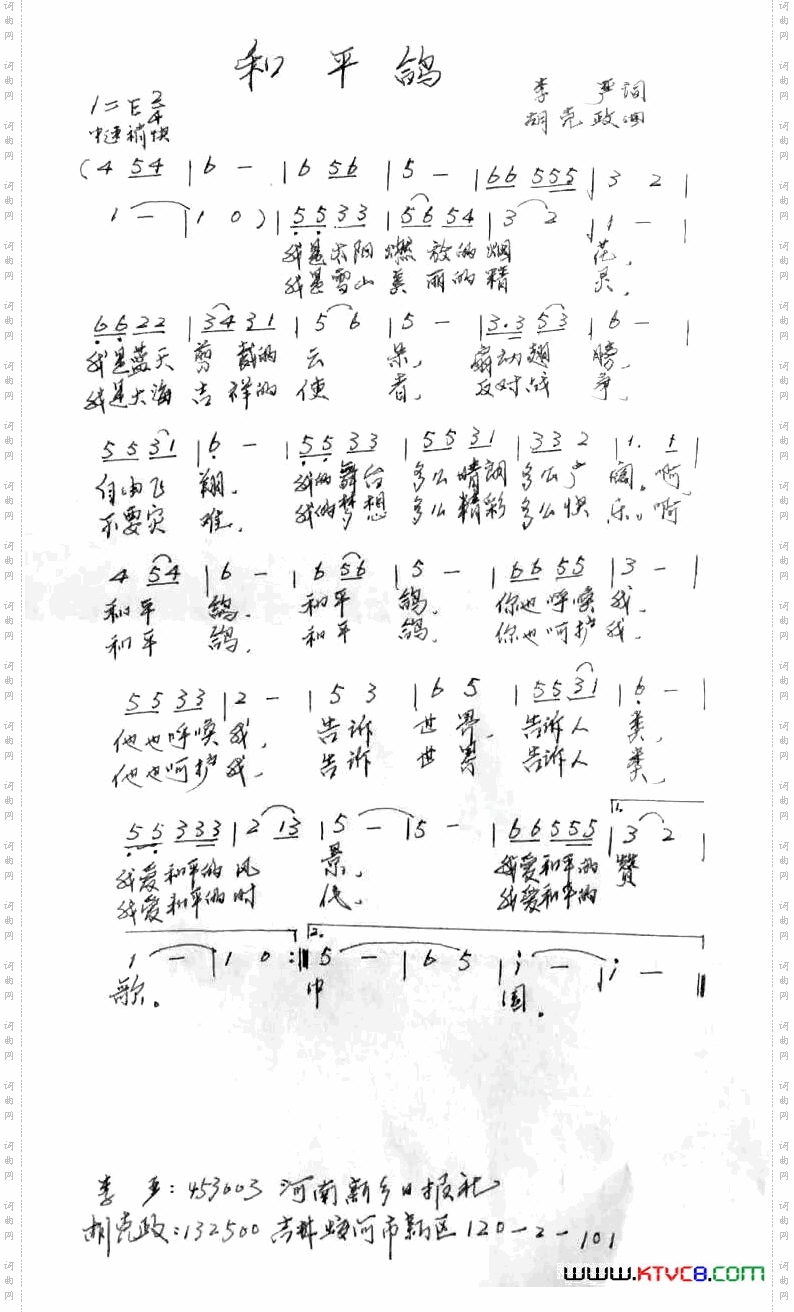 和平鸽
李严词
1=E 2/4
胡克政曲
中速稍快
(4 54 | 6 - | 6 56 | 5 - | 66 555 | 3 2 |
1 - | 1 0 ) | 55 33 | 56 54 | 3 2 | 1 - |
我是太阳燃放的烟花,
我是雪山美丽的精灵,
66 22 | 34 31 | 5 6 | 5 - | 3·3 53 | 6 - |
我是蓝天剪裁的云朵, 扇动翅膀,
我是大海吉祥的使者, 反对战争,
55 31 | 6 - | 55 33 | 55 31 | 33 2 | 1. 1 |
自由飞翔, 我的舞台多么晴朗多么广阔。啊,
不要灾难, 我的梦想多么精彩多么快乐。啊
4 54 | 6 - | 6 56 | 5 - | 66 55 | 3 - |
和平鸽, 和平鸽, 你也呼唤我,
和平鸽, 和平鸽, 你也呵护我,
55 33 | 2 - | 5 3 | 6 5 | 55 31 | 6 - |
他也呼唤我, 告诉世界, 告诉人类,
他也呵护我, 告诉世界 告诉人类,
55 333 | 2 13 | 5 - | 5 - | 66 555 | 1. 3 2 |
我爱和平的风景, 我爱和平的赞
我爱和平的时代, 我爱和平的
1 - | 1 0 :‖ 2. 5 - | 6 5 | i - | i - ‖
歌。 中国。
李严:453003 河南新乡日报社
胡克政:132500 吉林蛟河市新区120-2-101
www.KTVC8.com
词曲网